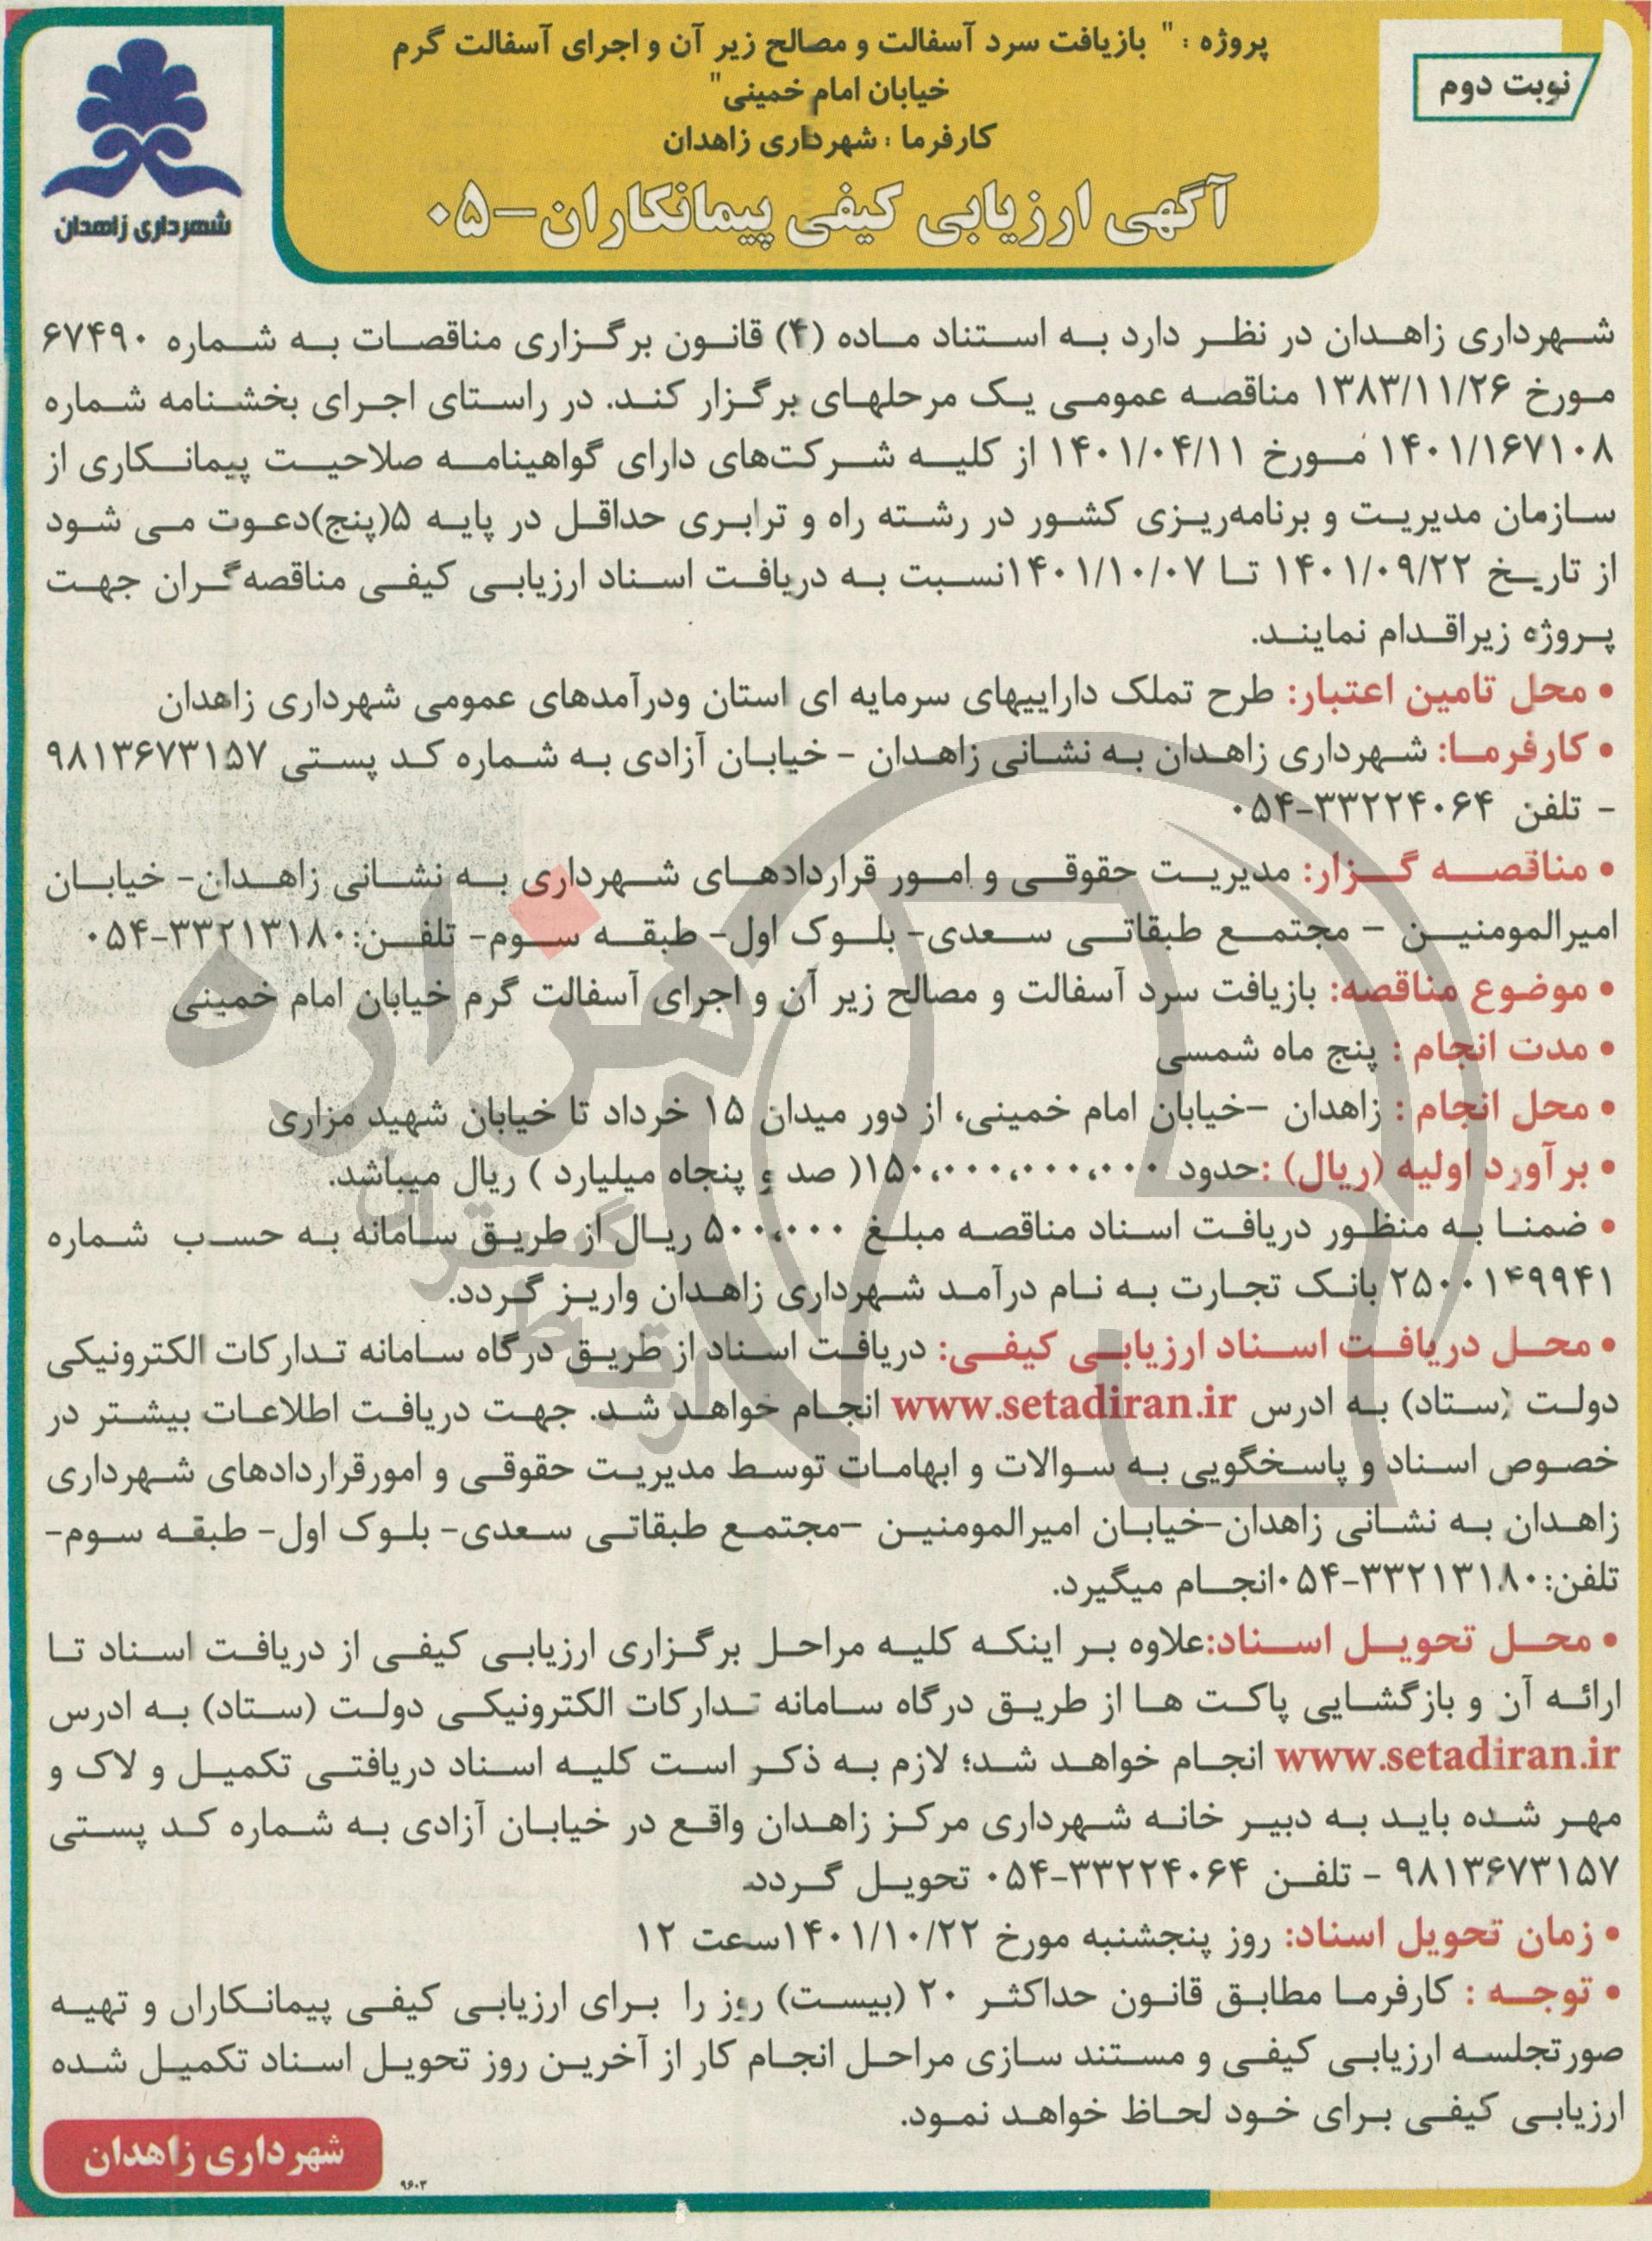 نوبت دوم
پروژه : " بازیافت سرد آسفالت و مصالح زیر آن و اجرای آسفالت گرم
خیابان امام خمینی"
کارفرما : شهرداری زاهدان
آگهی ارزیابی کیفی پیمانکاران-۰۵
شهرداری زاهدان
شهرداری زاهدان در نظر دارد به استناد ماده (۴) قانون برگزاری مناقصات به شماره ۶۷۴۹۰
مورخ ۱۳۸۳/۱۱/۲۶ مناقصه عمومی یک مرحلهای برگزار کند. در راستای اجرای بخشنامه شماره
۱۴۰۱/۱۶۷۱۰۸ مورخ ۱۴۰۱/۰۴/۱۱ از کلیه شرکت‌های دارای گواهینامه صلاحیت پیمانکاری از
سازمان مدیریت و برنامه‌ریزی کشور در رشته راه و ترابری حداقل در پایه ۵(پنج)دعوت می شود
از تاریخ ۱۴۰۱/۰۹/۲۲ تا ۱۴۰۱/۱۰/۰۷نسبت به دریافت اسناد ارزیابی کیفی مناقصه‌گران جهت
پروژه زیراقدام نمایند.
• محل تامین اعتبار: طرح تملک داراییهای سرمایه ای استان ودرآمدهای عمومی شهرداری زاهدان
• کارفرما: شهرداری زاهدان به نشانی زاهدان - خیابان آزادی به شماره کد پستی ۹۸۱۳۶۷۳۱۵۷
- تلفن ۳۳۲۲۴۰۶۴-۰۵۴
• مناقصه گزار: مدیریت حقوقی و امور قراردادهای شهرداری به نشانی زاهدان- خیابان
امیرالمومنین - مجتمع طبقاتی سعدی- بلوک اول- طبقه سوم- تلفن:۳۳۲۱۳۱۸۰-۰۵۴
• موضوع مناقصه: بازیافت سرد آسفالت و مصالح زیر آن و اجرای آسفالت گرم خیابان امام خمینی
• مدت انجام : پنج ماه شمسی
• محل انجام : زاهدان -خیابان امام خمینی، از دور میدان ۱۵ خرداد تا خیابان شهید مزاری
• برآورد اولیه (ریال) :حدود ۱۵۰،۰۰۰،۰۰۰،۰۰۰( صد و پنجاه میلیارد ) ریال میباشد.
• ضمنا به منظور دریافت اسناد مناقصه مبلغ ۵۰۰،۰۰۰ ریال از طریق سامانه به حسب شماره
۲۵۰۰۱۴۹۹۴۱ بانک تجارت به نام درآمد شهرداری زاهدان واریز گردد.
• محل دریافت اسناد ارزیابی کیفی: دریافت اسناد از طریق درگاه سامانه تدارکات الکترونیکی
دولت (ستاد) به ادرس www.setadiran.ir انجام خواهد شد. جهت دریافت اطلاعات بیشتر در
خصوص اسناد و پاسخگویی به سوالات و ابهامات توسط مدیریت حقوقی و امورقراردادهای شهرداری
زاهدان به نشانی زاهدان-خیابان امیرالمومنین -مجتمع طبقاتی سعدی- بلوک اول- طبقه سوم-
تلفن:۳۳۲۱۳۱۸۰-۰۵۴انجام میگیرد.
• محل تحویل اسناد:علاوه بر اینکه کلیه مراحل برگزاری ارزیابی کیفی از دریافت اسناد تا
ارائه آن و بازگشایی پاکت ها از طریق درگاه سامانه تدارکات الکترونیکی دولت (ستاد) به ادرس
www.setadiran.ir انجام خواهد شد؛ لازم به ذکر است کلیه اسناد دریافتی تکمیل و لاک و
مهر شده باید به دبیر خانه شهرداری مرکز زاهدان واقع در خیابان آزادی به شماره کد پستی
۹۸۱۳۶۷۳۱۵۷ - تلفن ۳۳۲۲۴۰۶۴-۰۵۴ تحویل گردد.
• زمان تحویل اسناد: روز پنجشنبه مورخ ۱۴۰۱/۱۰/۲۲سعت ۱۲
• توجه : کارفرما مطابق قانون حداکثر ۲۰ (بیست) روز را برای ارزیابی کیفی پیمانکاران و تهیه
صورتجلسه ارزیابی کیفی و مستند سازی مراحل انجام کار از آخرین روز تحویل اسناد تکمیل شده
ارزیابی کیفی برای خود لحاظ خواهد نمود.
شهرداری زاهدان
۹۶۰۳
هزاره